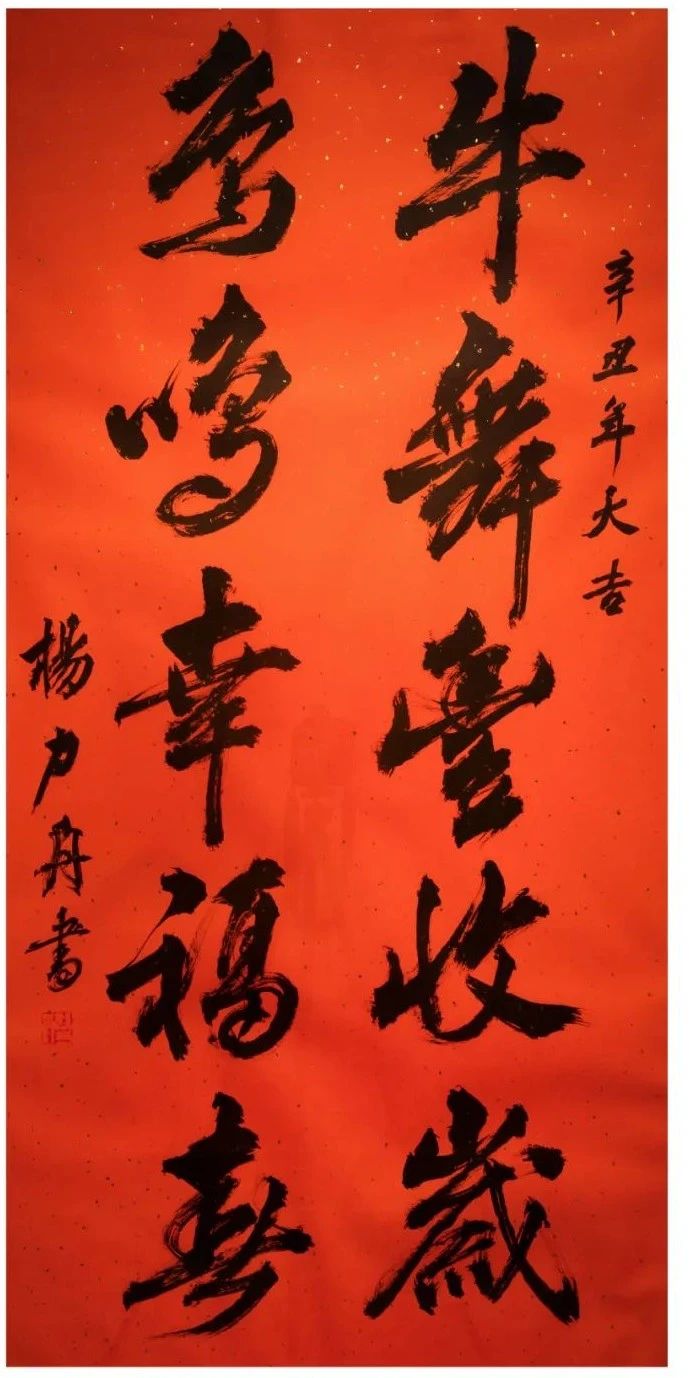 辛丑年大吉
牛舞豐收歲
鸟鸣幸福春
楊力舟書